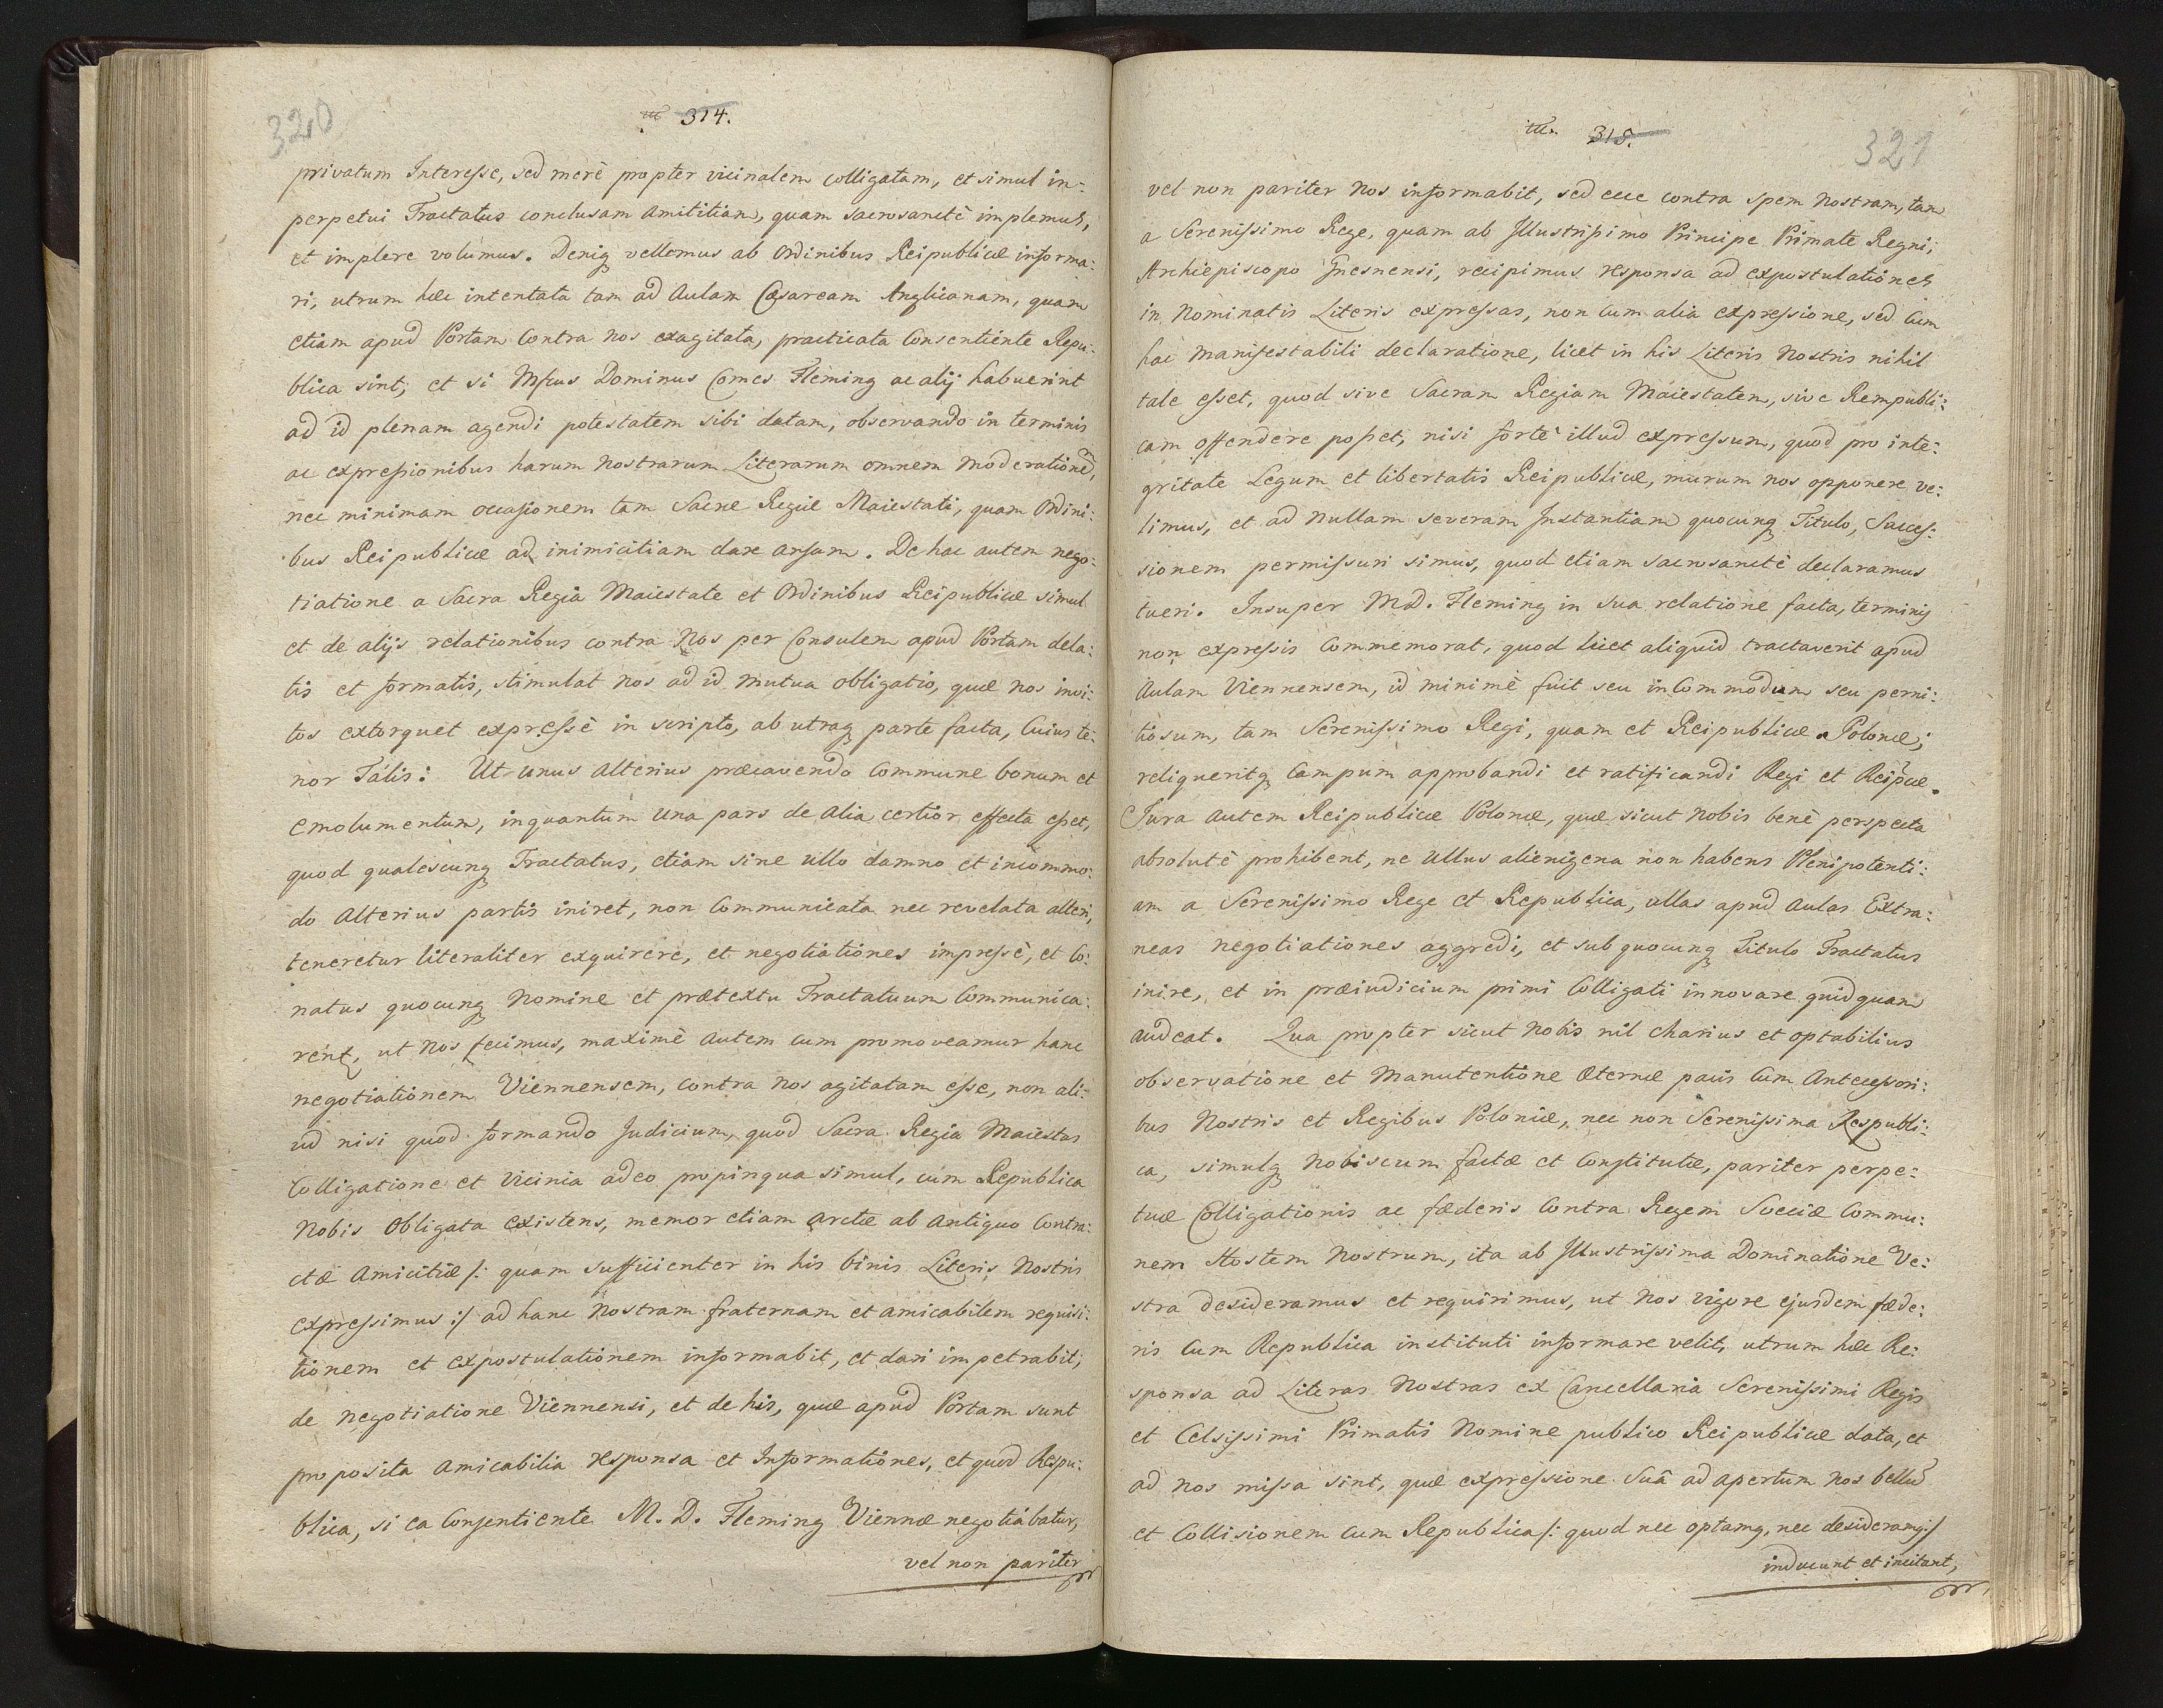 320
314.
privatum Interesse, sed merè propter vicinalem colligatam, et simul in-
perpetui Tractatus conclusam amititiam, quam sacrosanctè implemus,
et implere volumus. Deniq vellemus ab Ordinibus Reipublicæ informa:
ri, utrum hæc intentata tam ad Aulam Cæsaream Anglicanam, quam
etiam apud Portam contra nos exagitata, practicata Consentiente Repu:
blica sint; et si Mfcus Dominus Comes Fleming ac alij habuerint
ad id plenam agendi potestatem sibi datam, observando in terminis
ac expressionibus harum nostrarum Literarum omnem moderationē,
nec minimam occasionem tam Sacræ Regiæ Maiestati, quam Ordini:
bus Reipublicæ ad inimicitiam dare ansam. De hac autem nego:
tiatione a Sacra Regia Maiestate et Ordinibus Reipublicæ simul
et de alijs relationibus contra Nos per Consulem apud Portam dela:
tis et formatis, stimulat nos ad id mutua obligatio, quæ nos invi:
tos extorquet expressè in scripto, ab utraq parte facta, Cuius te:
nor Talis: Ut unus alterius præcavendo Commune bonum et
emolumentum, inquantum una pars de alia certior effecta esset,
quod qualescunq Tractatus, etiam sine ullo damno et incommo:
do Alterius partis iniret, non Communicata nec revelata alteri,
teneretur literaliter exquirere, et negotiationes impressè, et Co:
natus quocunq Nomine et prætextu Tractatuum Communica:
rent, ut Nos fecimus, maximè autem cum promoveamur hanc
negotiationem Viennensem, contra nos agitatam esse, non ali:
ud nisi quod formando Judicium, quod Sacra Regia Maiestas
Colligatione et vicinia adeo propinqua simul, cum Republica
Nobis Obligata existens, memor etiam arctæ ab Antiquo Contra:
ctæ Amicitiæ /: quam sufficienter in his binis Literis Nostris
expressimus :/ ad hanc Nostram fraternam et amicabilem requisi:
tionem et expostulationem informabit, et dari impetrabit,
de negotiatione Viennensi, et de his, quæ apud Portam sunt
proposita amicabilia responsa et Informationes, et quod Respu:
blica, si ea Consentiente M. D. Fleming Viennæ negotiabatur,
vel non pariter
315.
321
vel non pariter Nos informabit, sed ecce contra spem Nostram, tam
a Serenissimo Rege, quam ab Illustrissimo Principe Primate Regni,
Archiepiscopo Gnesnensi, recipimus responsa ad expostulationes
in Nominatis Literis expressas, non cum alia expressione, sed cum
hac manifestabili declaratione, licet in his Literis Nostris nihil
tale esset, quod sive Sacram Regiam Maiestatem, sive Rempubli:
cam offendere posset, nisi fortè illud expressum, quod pro inte:
gritate Legum et libertatis Reipublicæ, murum nos opponere ve:
limus, et ad nullam severam Instantiam quocunq Titulo, Succes:
sionem permissuri simus, quod etiam sacrosanctè declaramus
tueri. Insuper M.D. Fleming in sua relatione facta, terminis
non expressis Commemorat, quod licet aliquid tractaverit apud
Aulam Viennensem, id minimè fuit seu incommodum seu perni:
tiosum, tam Serenissimo Regi, quam et Reipublicæ Polonæ;
reliqueritq Campum approbandi et ratificandi Regi et Reipcæ.
Jura autem Reipublicæ Polonæ, quæ sicut nobis benè perspecta
absolutè prohibent, ne ullus alienigena non habens Plenipotenti:
am a Serenissimo Rege et Republica, ullas apud Aulas Extra:
neas negotiationes aggredi, et sub quocunq Titulo Tractatus
inire, et in præiudicium primi Colligati innovare quidquam
audeat. Qua propter sicut Nobis nil charius et optabilius
observatione et Manutentione æternæ pacis Cum Antecessori:
bus Nostris et Regibus Poloniæ, nec non Serenissima Respubli:
ca, simulq Nobiscum factæ et Constitutæ, pariter perpe:
tuæ Colligationis ac fæderis Contra Regem Sueciæ Commu:
nem Hostem Nostrum, ita ab Illustrissima Dominatione Ve:
stra desideramus et requirimus, ut Nos vigore ejusdem fæde:
ris Cum Republica instituti informare velit, utrum hæc Re:
sponsa ad Literas Nostras ex Cancellaria Serenissimi Regis
et Celsissimi Primatis Nomine publico Reipublicæ data, et
ad nos missa sint, quæ expressione suâ ad apertum nos bellū
et Collisionem cum Republica /: quod nec optamq, nec desideramq :/
inducunt et incitant,